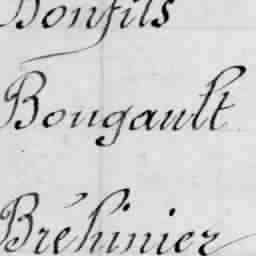 Bonfils
Bougault
Bréhinier